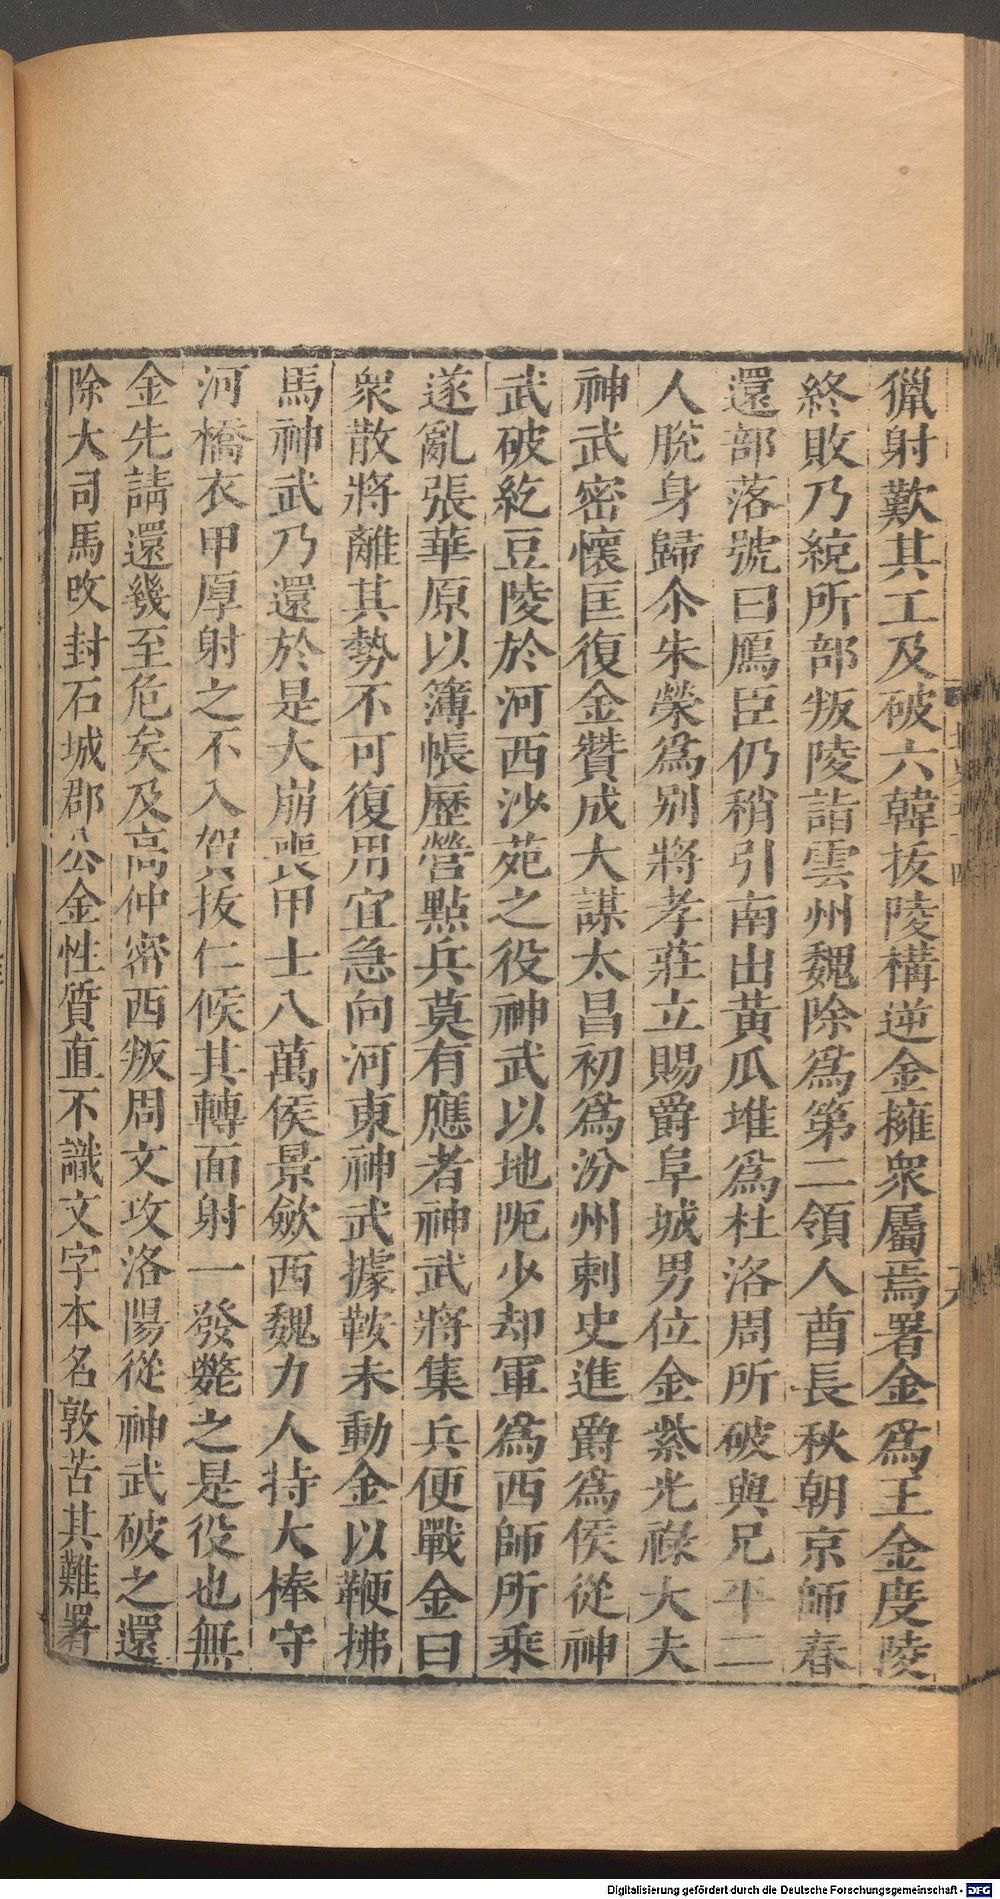 獵射歎其工及破六韓拔陵構逆金擁衆屬焉署金爲王金度陵
終敗乃統所部叛陵詣雲州魏除爲第二領人酋長秋朝京師春
還部落號曰鴈臣仍稍引南出黃瓜堆爲杜洛周所破與兄平二
人脫身歸尒朱榮爲別將孝莊立賜爵阜城男位金紫光祿大夫
神武密懷匡復金贊成大謀太昌初爲汾州刺史進爵爲侯從神
武破紇豆陵於河西沙苑之役神武以地阨少却軍爲西師所乘
遂亂張華原以簿帳歷營點兵莫有應者神武將集兵便戰金曰
衆散將離其勢不可復用宜急向河東神武據鞍未動金以鞭拂
馬神武乃還於是大崩喪甲士八萬侯景斂西魏力人持大棒守
河橋衣甲厚射之不入賀拔仁候其轉面射一發斃之是役也無
金先請還幾至危矣及高仲密西叛周文攻洛陽從神武破之還
除大司馬攺封石城郡公金性質直不識文字本名敦苦其難署
Digitalisierung gefördert durch die Deutsche Forschungsgemeinschaft - DFG